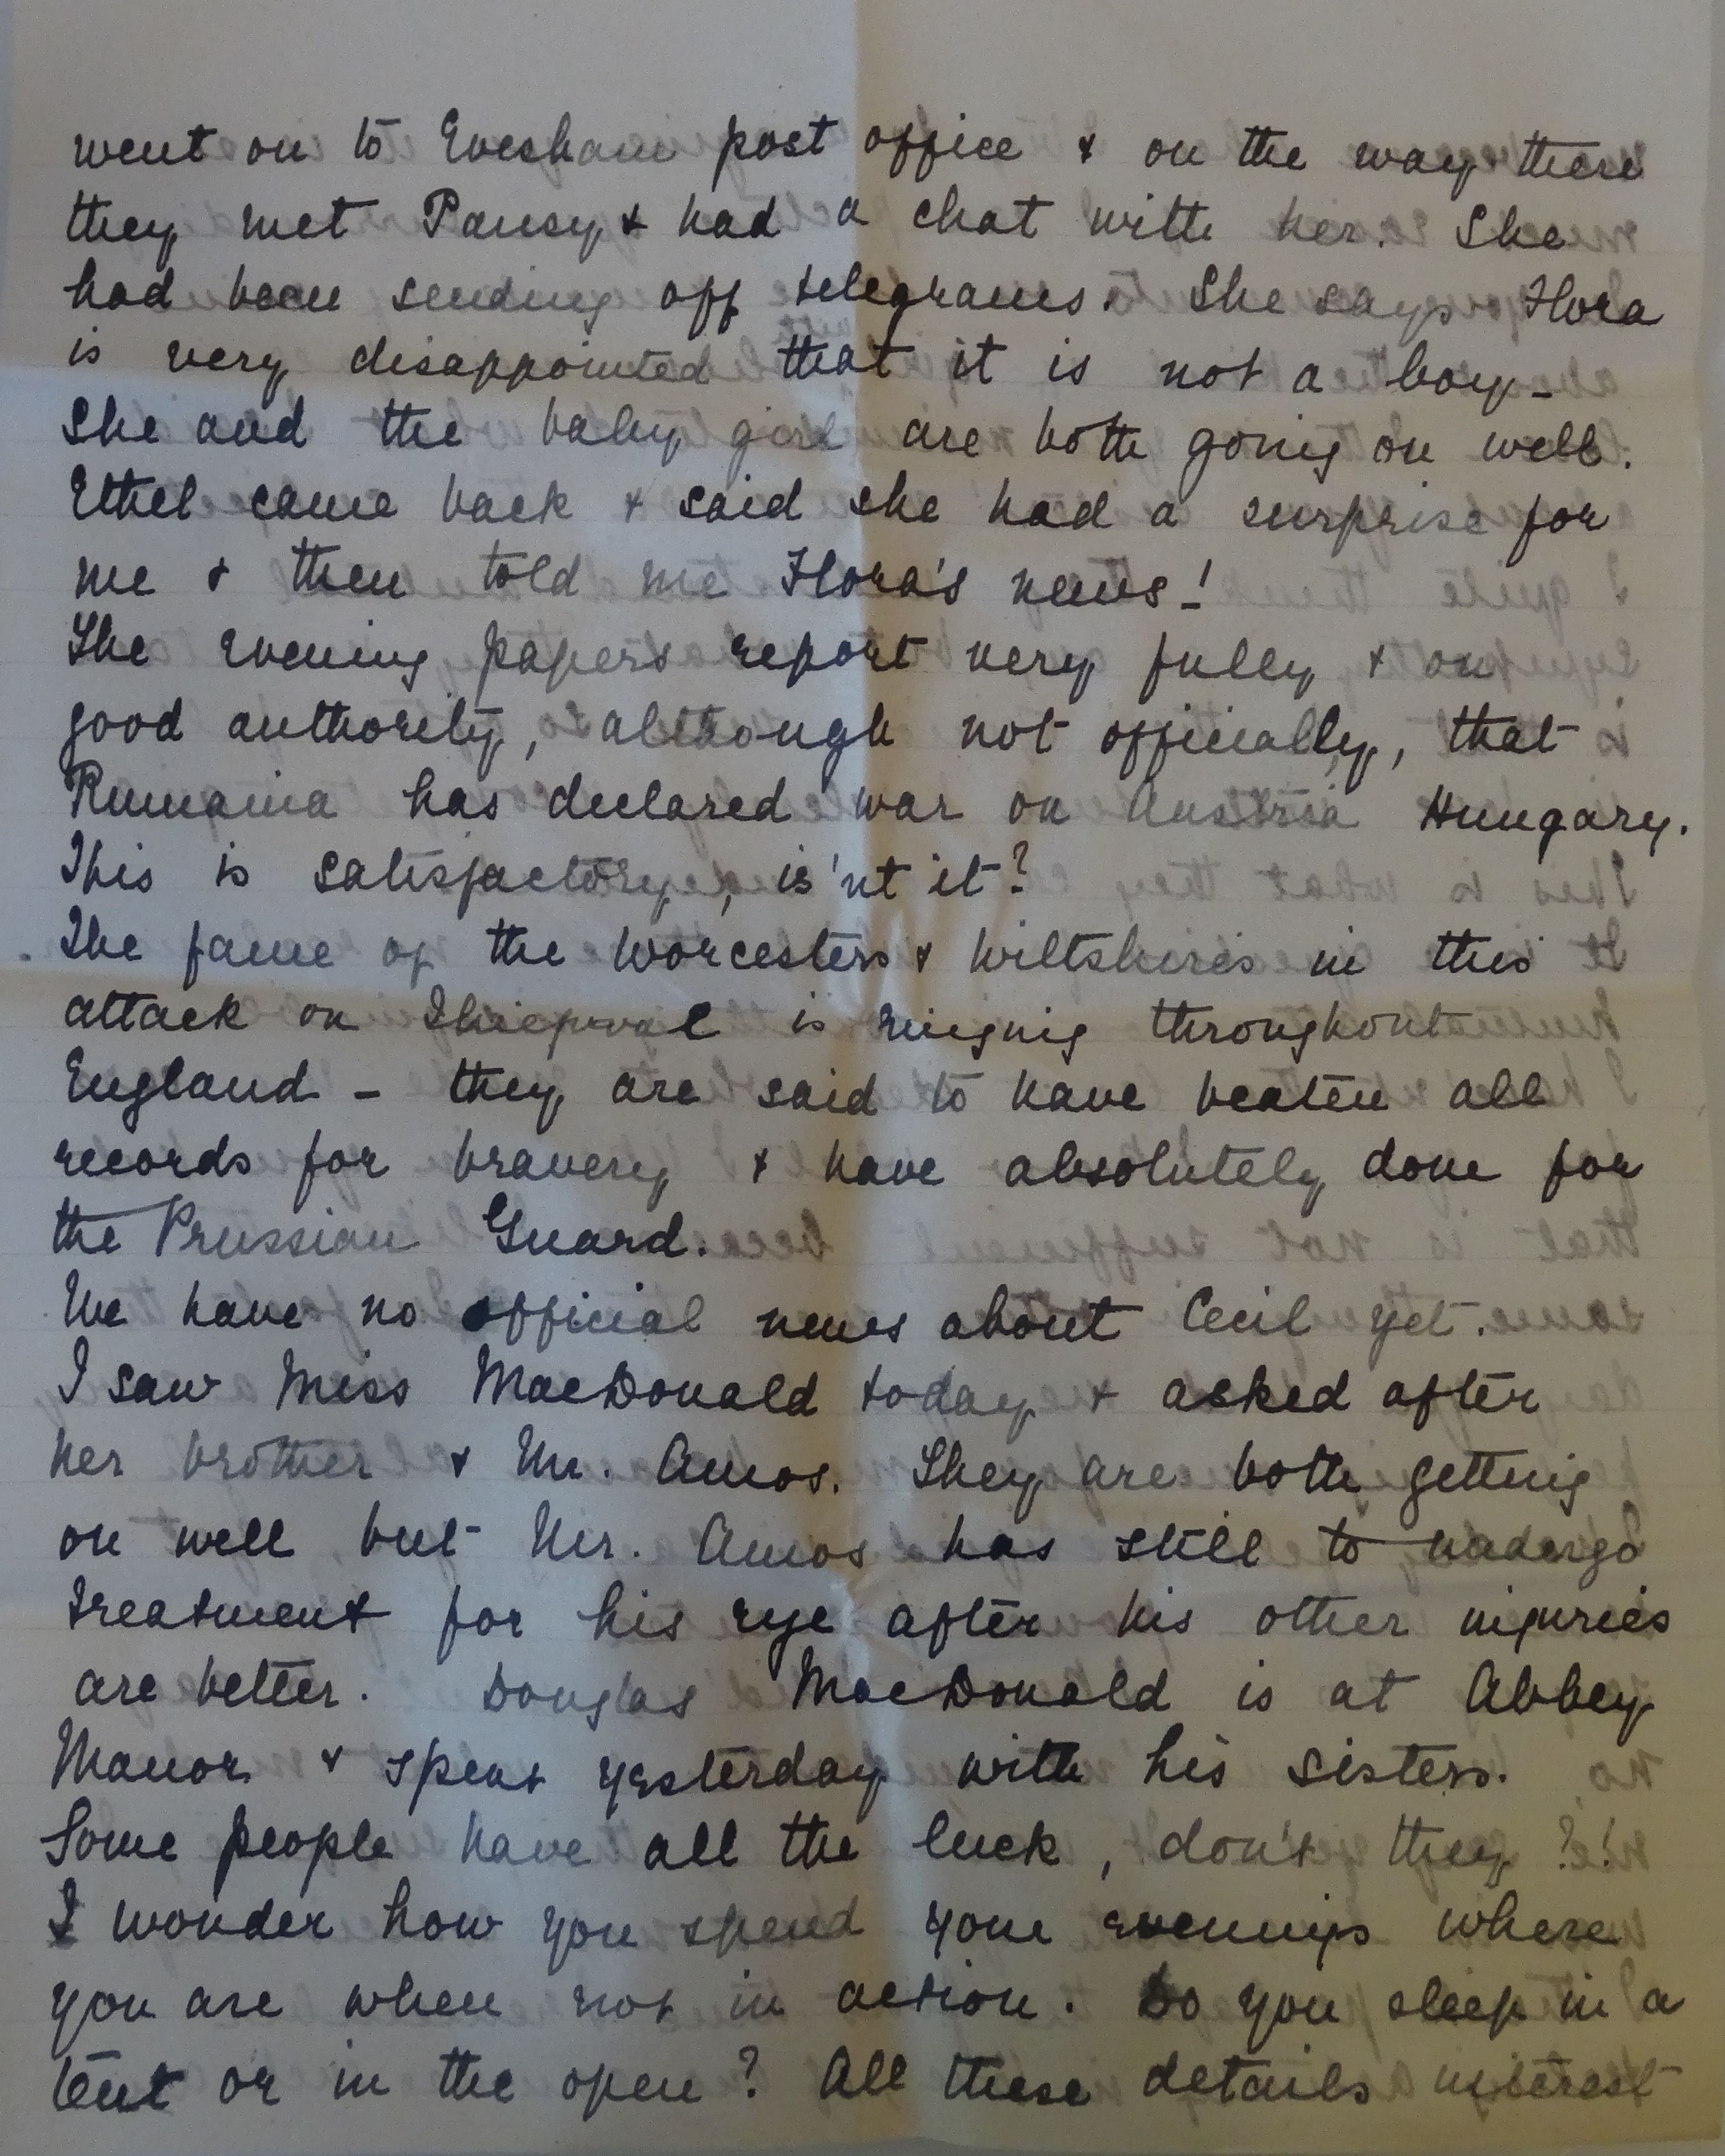 went on to Evesham post office & on the way there
they met Pansy & had a chat with her. She
had been sending off telegrams. She says Flora
is very disappointed that it is not a boy -
She and the baby girl are both going on well.
Ethel came back & said she had a surprise for
me & then told me Flora's news!
The evening papers report very fully & on
good authority, although not officially, that
Rumania has declared war on Austria Hungary.
This is satisfactory, is'nt it?
The fame of the Worcesters & Wiltshires in this
attack on Thiepval is ringing throughout
England - they are said to have beaten all
records for bravery & have absolutely done for
the Prussian Guard.
We have no official news about Cecil yet.
I saw Miss MacDonald today & asked after
her brother & Mr. Amos. They are both getting
on well but Mr. Amos has still to undergo
treatment for his eye after his other injuries
are better. Douglas MacDonald is at Abbey
Manor & spent yesterday with his sisters.
Some people have all the luck, don't they?!
I wonder how you spend your evenings where
you are when not in action. Do you sleep in a
tent or in the open? All these details interest